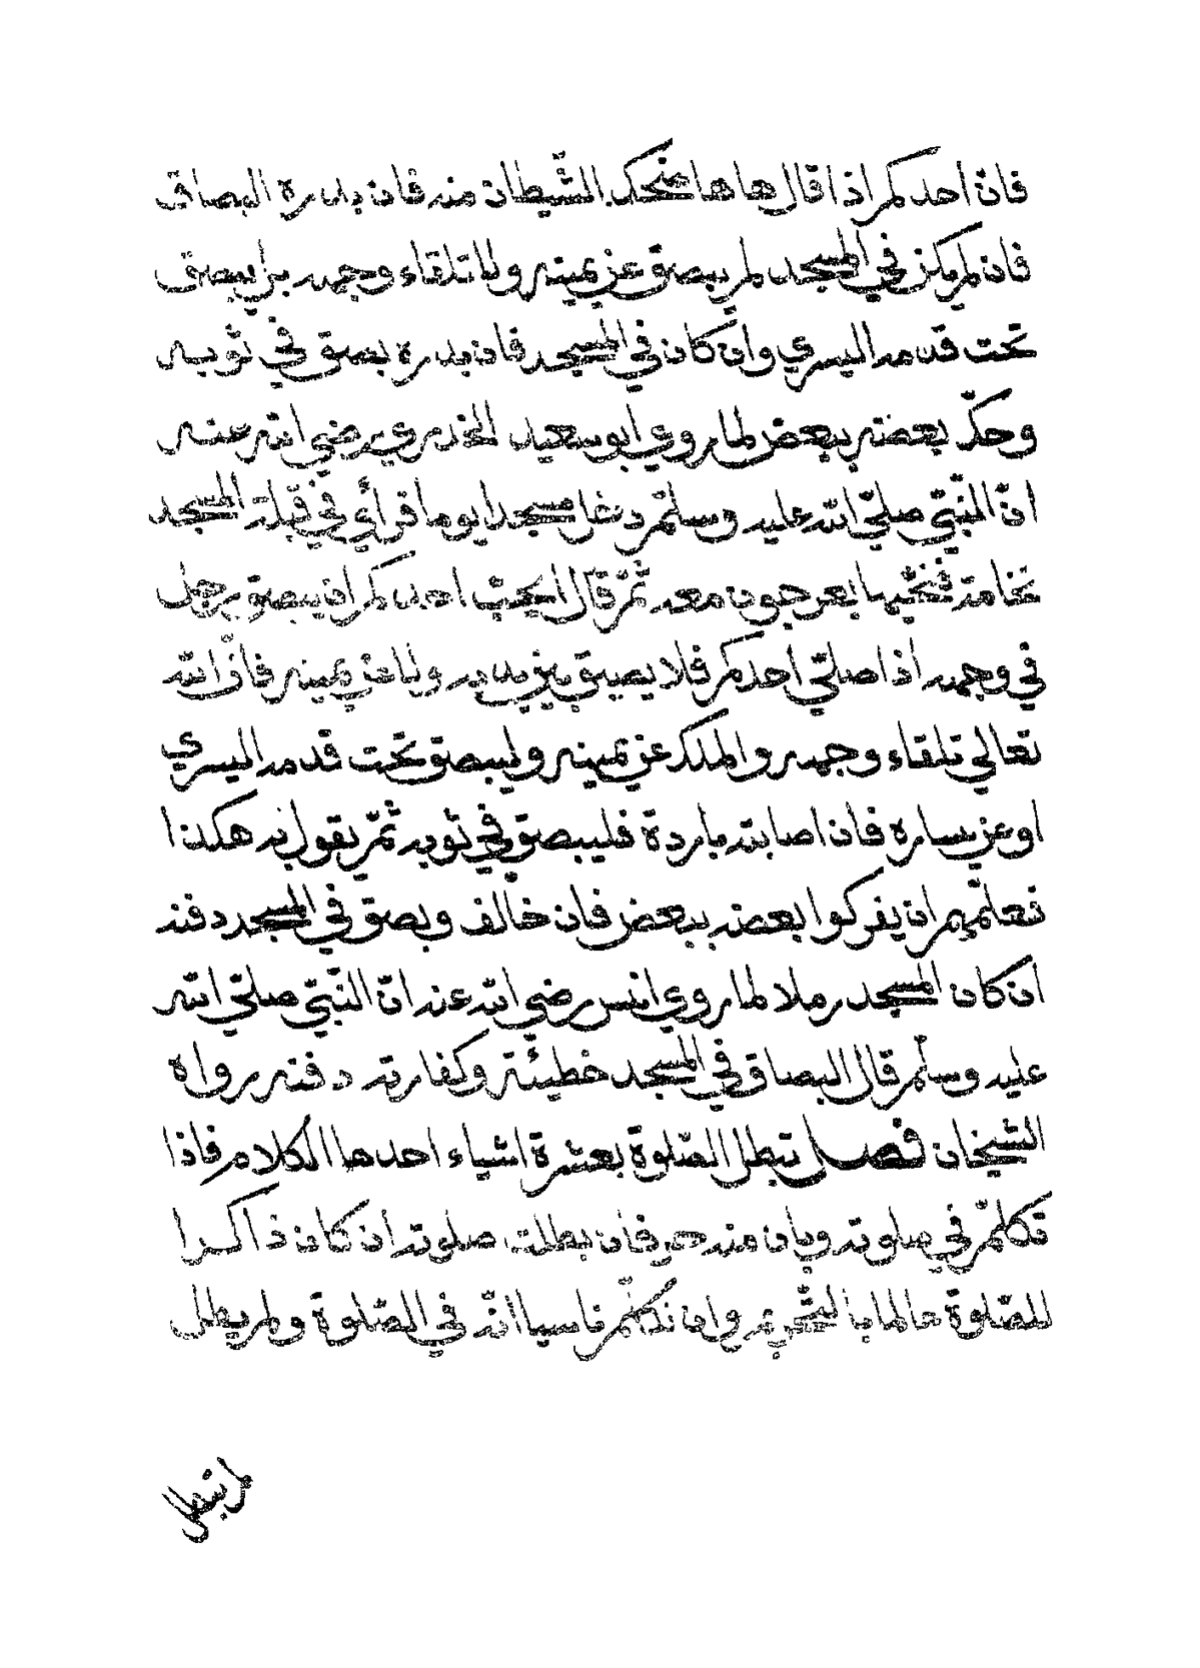 فان احدكم اذا قال ها ها ضحك الشيطان منه فان بدره البصاق
فان لم يكن في المسجد لم يبصق عن يمينه ولا تلقاء وجهه بل يبصق
تحت قدمه اليسري وان كان في المسجد فان بدره بصق في ثوبه
وحكّ بعضه ببعض لما روي ابو سعيد الخدري رضي الله عنه
انّ النّبيّ صلّي الله عليه وسلّم دخل مسجدا يوما فرأي في قبلة المسجد
نخامة فحتّها بعرجون معه ثمّ قال ايحبّ احدكم ان يبصق رجل
في وجهه اذا صلّي احدكم فلا يبصق بين يديه ولا عن يمينه فانّ الله
تعالي تلقاء وجهه والملك عن يمينه وليبصق تحت قدمه اليسري
او عن يساره فان اصابته بادرة فليبصق في ثوبه ثمّ يقول به هكذا
فعلّمهم ان يفركوا بعضه ببعض فان خالف وبصق في المسجد دفنه
ان كان المسجد رملا لما روي انس رضي الله عنه انّ النّبيّ صلّي الله
عليه وسلّم قال البصاق في المسجد خطيئة وكفارته دفنه رواه
الشيخان فصل تبطل الصّلوة بعشرة اشياء احدها الكلام فاذا
تكلّم في صلوته وبان منه حرفان بطلت صلوته ان كان ذاكرا
للصّلوة عالما بالتّحريم وان تكلّم ناسيا انّه في الصّلوة ولم يطل